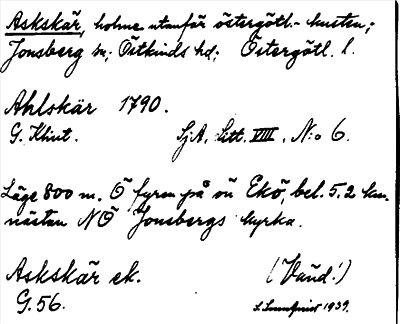 Askskär, holme utanför östergötl.-kusten;
Jonsberg sn; Östkinds hd; Östergötl. l.
Ahlskär 1790.
G. Klint. SjA, Litt. VIII, N:o 6.
Läge 800 m. Ö fyren på ön Ekö, bel. 5.2 km.
nästan NÖ Jonsbergs kyrka.
Askskär ek.
G. 56. 1939.